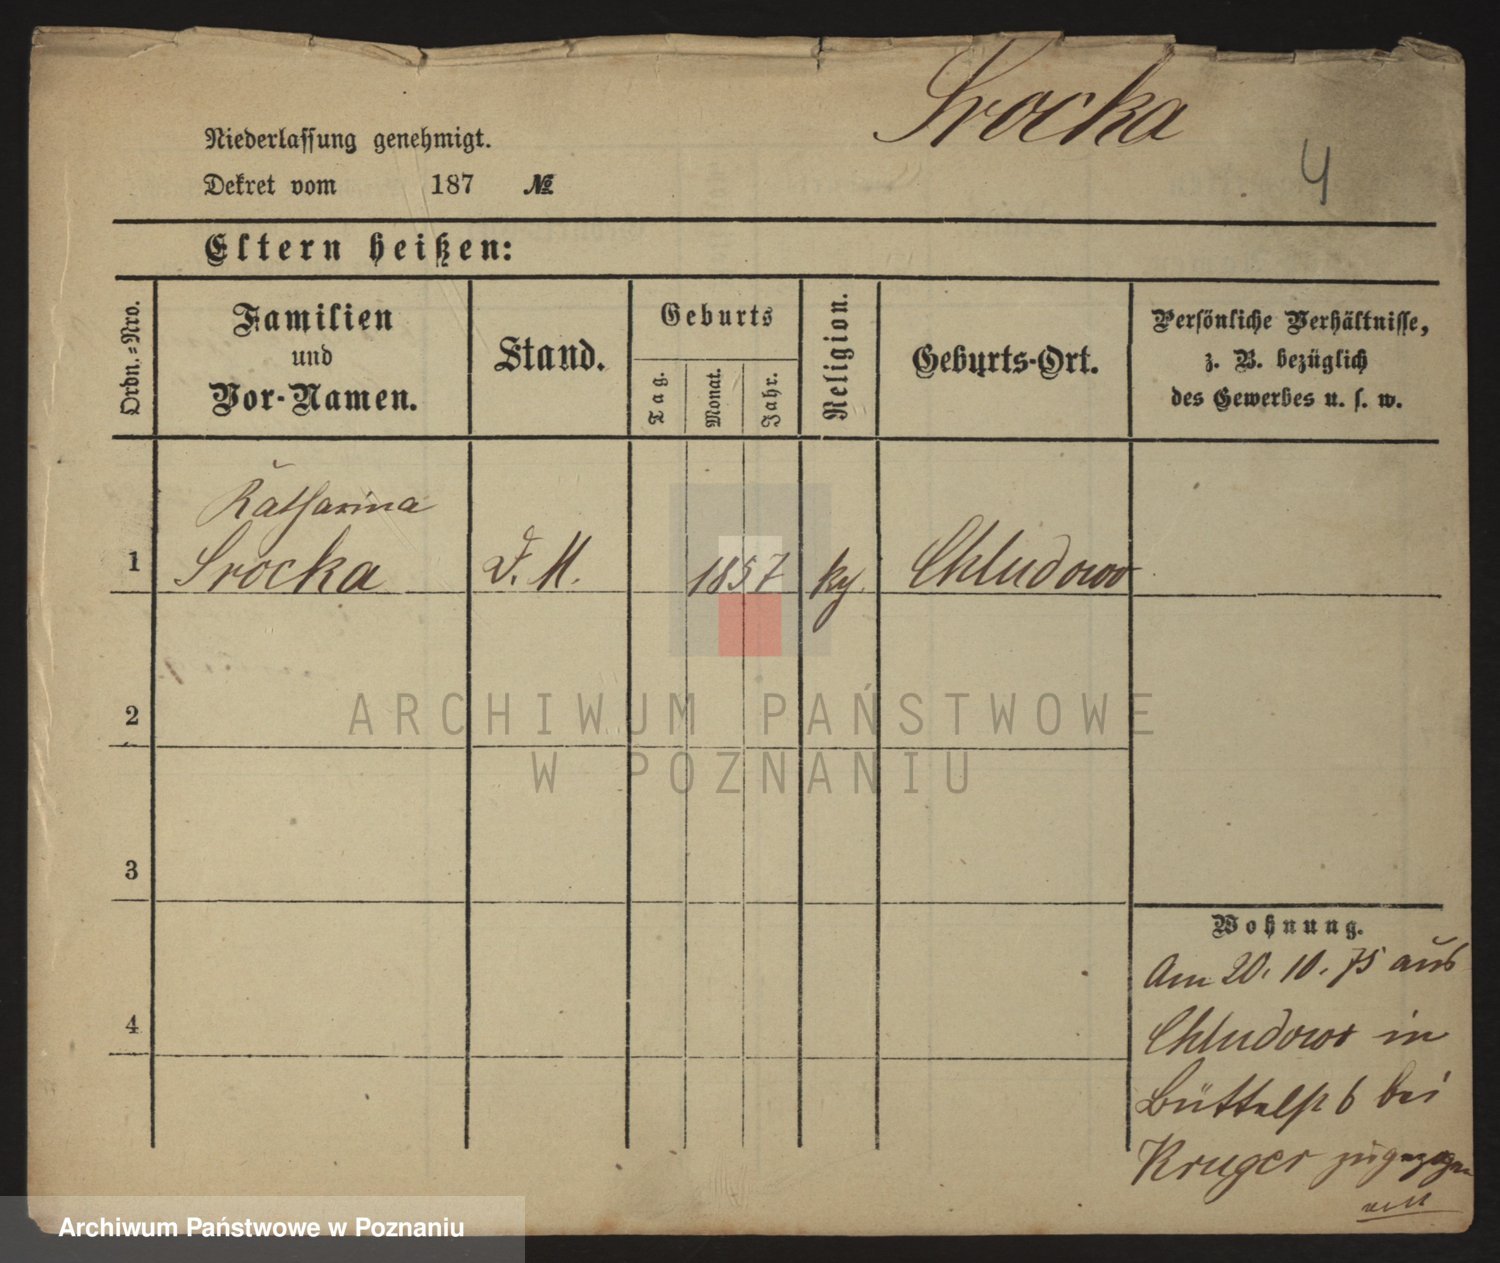 Srocka
4
Niederlassung genehmigt.
Dekret vom 187 №
Eltern heißen:
Ordn.=Nro.
Familien
und
Vor-Namen.
Stand.
Geburts
Tag.
Monat.
Jahr.
Religion.
Geburts-Ort.
Persönliche Verhältnisse,
z. B. bezüglich
des Gewerbes u. s. w.
Katharina
1 Srocka D. M. 1857 Chludowo
2
3
4
Wohnung.
Am 20. 10. 75 aus
Chludowo in
Büttelst 6 bei
Kruger zugezogen
ARCHIWUM PAŃSTWOWE
W POZNANIU
Archiwum Państwowe w Poznaniu